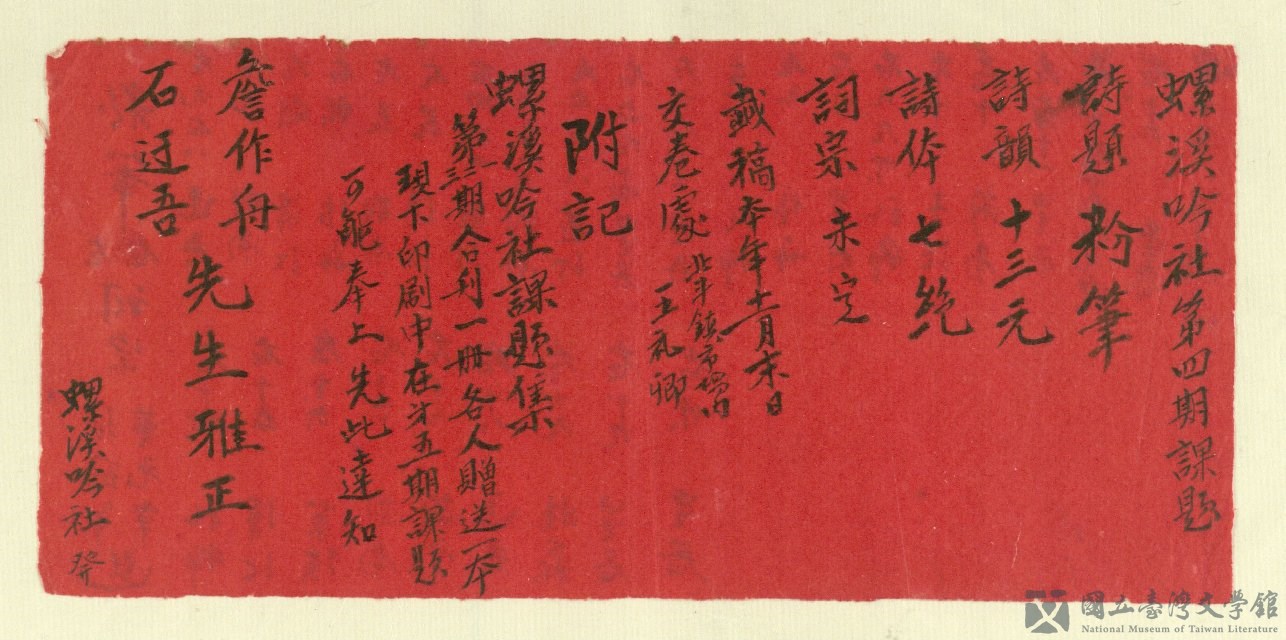 螺溪吟社第四期課題
詩題 粉筆
詩韻 十三元
詩体 七絕
詞宗 未定
截稿本年十一月末日
交卷處 北斗鎮市場內
王礼卿
附記
螺溪吟社課題集
第三期合刊一冊各人贈送一本
現下印刷中在第五期課題
可能奉上先此達知
詹作舟
石迂吾
先生雅正
螺溪吟社 發
國立臺灣文學館
National Museum of Taiwan Literature